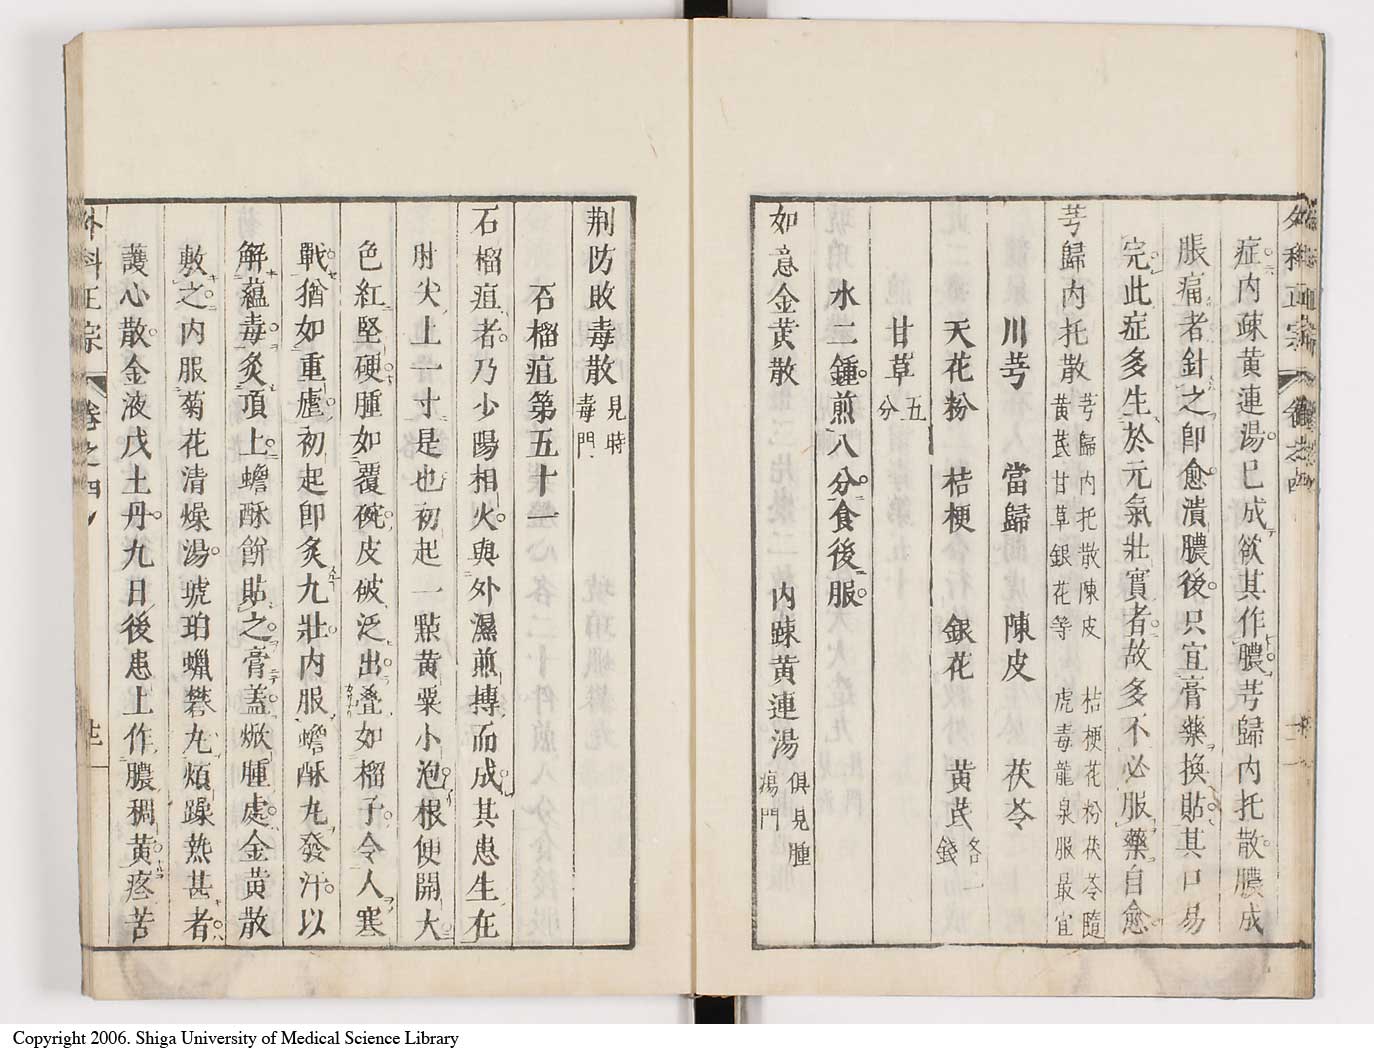 症内疎黄連湯已成欲其作膿芎歸内托散膿成
脹痛者針之即愈潰膿後只宜膏藥換貼其口易
完此症多生於元氣壯實者故多不必服藥自愈
芎歸内托散 芎歸内托散陳皮 桔梗花粉茯苓隨
黄芪甘草銀花等 虎毒龍泉服最宜
川芎 當歸 陳皮 茯苓
天花粉 桔梗 銀花 黄芪 各一錢
甘草 五分
水二鍾煎八分食後服
如意金黄散 内疎黄連湯 俱見腫瘍門
荆防敗毒散 見時毒門
石榴疽第五十一
石榴疽者乃少陽相火與外濕煎摶而成其患生在
肘尖上一寸是也初起一點黄粟小泡根便開大
色紅堅硬腫如覆碗皮破泛出叠如榴子令人寒
戰猶如重瘧初起即炙九壯内服蟾酥丸發汗以
解蘊毒炙頂上蟾酥餅貼之膏盖焮腫處金黄散
敷之内服菊花清燥湯琥珀蠟礬丸煩躁熱甚者
護心散金液戊土丹九日後患上作膿稠黄疼苦
外科正宗 卷之四